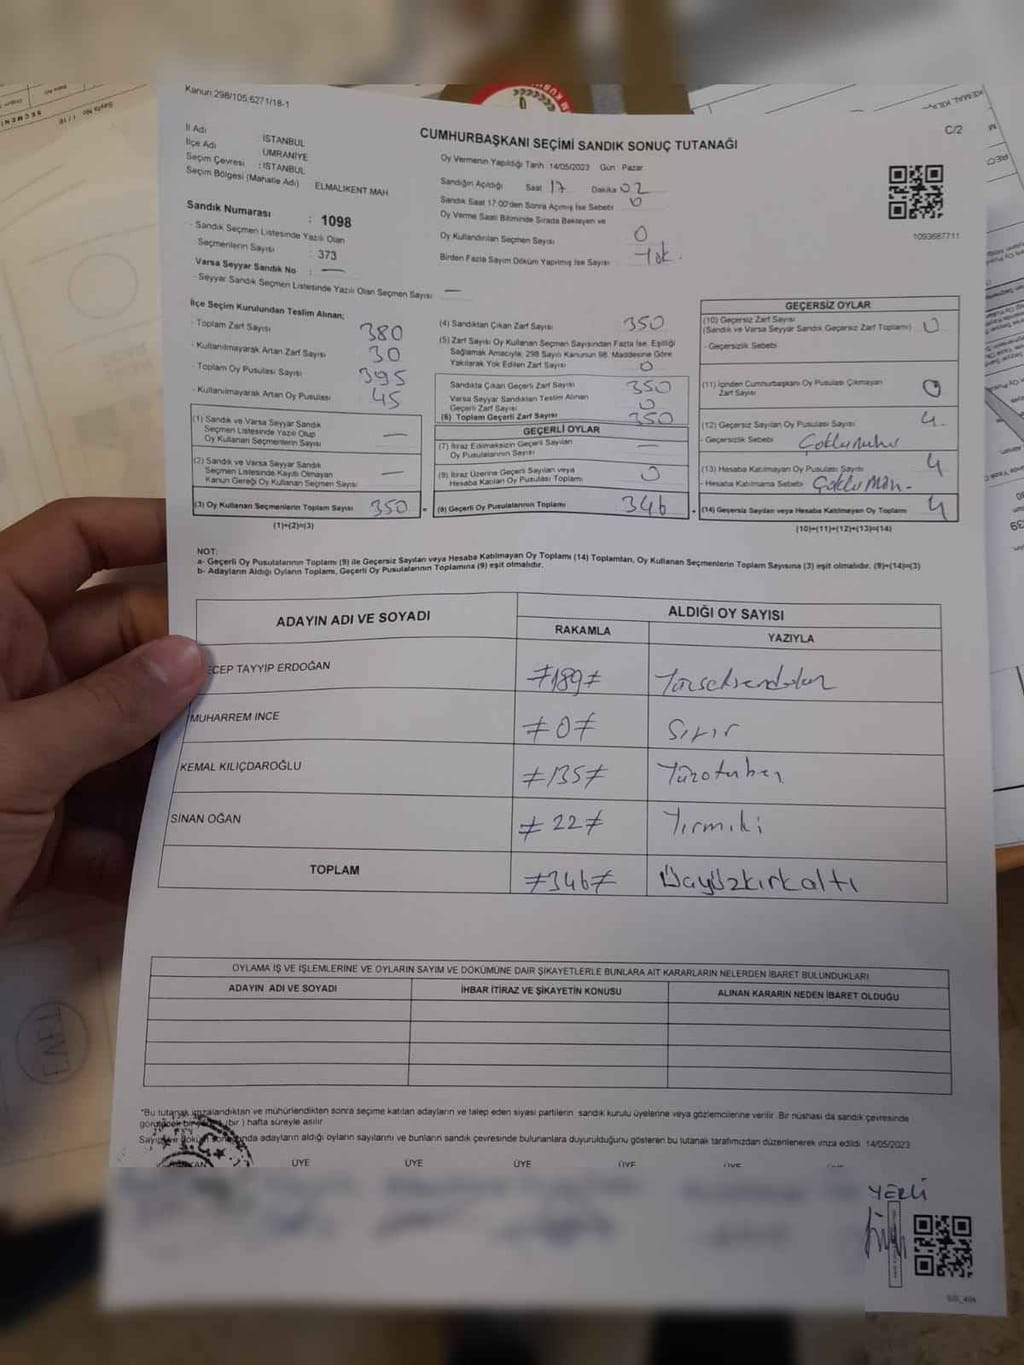 Kanun:298/105;6271/18-1
C/2
CUMHURBAŞKANI SEÇİMİ SANDIK SONUÇ TUTANAĞI
İl Adı : İSTANBUL
İlçe Adı : ÜMRANİYE
Seçim Çevresi : İSTANBUL
Seçim Bölgesi (Mahalle Adı) ELMALIKENT MAH.
Sandık Numarası : 1098
- Sandık Seçmen Listesinde Yazılı Olan
Seçmenlerin Sayısı : 373
Varsa Seyyar Sandık No : —
- Seyyar Sandık Seçmen Listesinde Yazılı Olan Seçmen Sayısı —
Oy Vermenin Yapıldığı Tarih :14/05/2023 Gün : Pazar
Sandığın Açıldığı Saat 17 Dakika 02
Sandık Saat 17:00'den Sonra Açılmış İse Sebebi 0
Oy Verme Saati Bitiminde Sırada Bekleyen ve
Oy Kullandırılan Seçmen Sayısı 0
Birden Fazla Sayım Döküm Yapılmış İse Sayısı Yok.
1093687711
İlçe Seçim Kurulundan Teslim Alınan;
- Toplam Zarf Sayısı 380
- Kullanılmayarak Artan Zarf Sayısı 30
- Toplam Oy Pusulası Sayısı 395
- Kullanılmayarak Artan Oy Pusulası 45
(1) Sandık ve Varsa Seyyar Sandık
Seçmen Listesinde Yazılı Olup
Oy Kullanan Seçmenlerin Sayısı —
(2) Sandık ve Varsa Seyyar Sandık
Seçmen Listesinde Kayıtlı Olmayan
Kanun Gereği Oy Kullanan Seçmen Sayısı —
(3) Oy Kullanan Seçmenlerin Toplam Sayısı 350
(1)+(2)=(3)
(4) Sandıktan Çıkan Zarf Sayısı 350
(5) Zarf Sayısı Oy Kullanan Seçmen Sayısından Fazla İse, Eşitliği
Sağlamak Amacıyla, 298 Sayılı Kanunun 98. Maddesine Göre
Yakılarak Yok Edilen Zarf Sayısı 0
Sandıkta Çıkan Geçerli Zarf Sayısı 350
Varsa Seyyar Sandıktan Teslim Alınan
Geçerli Zarf Sayısı 0
(6) Toplam Geçerli Zarf Sayısı 350
GEÇERLİ OYLAR
(7) İtiraz Edilmeksizin Geçerli Sayılan
Oy Pusulalarının Sayısı —
(8) İtiraz Üzerine Geçerli Sayılan veya
Hesaba Katılan Oy Pusulaları Toplamı 0
(9) Geçerli Oy Pusulalarının Toplamı 346
GEÇERSİZ OYLAR
(10) Geçersiz Zarf Sayısı
(Sandık ve Varsa Seyyar Sandık Geçersiz Zarf Toplamı) 0
- Geçersizlik Sebebi
(11) İçinden Cumhurbaşkanı Oy Pusulası Çıkmayan
Zarf Sayısı 0
(12) Geçersiz Sayılan Oy Pusulası Sayısı 4
- Geçersizlik Sebebi
(13) Hesaba Katılmayan Oy Pusula Sayısı 4
- Hesaba Katılmama Sebebi
(14) Geçersiz Sayılan veya Hesaba Katılmayan Oy Toplamı 4
(10)+(11)+(12)+(13)=(14)
NOT:
a- Geçerli Oy Pusulalarının Toplamı (9) ile Geçersiz Sayılan veya Hesaba Katılmayan Oy Toplamı (14) Toplamları, Oy Kullanan Seçmenlerin Toplam Sayısına (3) eşit olmalıdır. (9)+(14)=(3)
b- Adayların Aldığı Oyların Toplamı, Geçerli Oy Pusulalarının Toplamına (9) eşit olmalıdır.
ADAYIN ADI VE SOYADI
ALDIĞI OY SAYISI
RAKAMLA YAZIYLA
ECEP TAYYİP ERDOĞAN ≠189≠ Yüzseksendokuz
MUHARREM İNCE ≠0≠ Sıfır
KEMAL KILIÇDAROĞLU ≠135≠ Yüzotuzbeş
SİNAN OĞAN ≠22≠ Yirmiiki
TOPLAM ≠346≠ Üçyüzkırkaltı
OYLAMA İŞ VE İŞLEMLERİNE VE OYLARIN SAYIM VE DÖKÜMÜNE DAİR ŞİKAYETLERLE BUNLARA AİT KARARLARIN NELERDEN İBARET BULUNDUKLARI
ADAYIN ADI VE SOYADI İHBAR İTİRAZ VE ŞİKAYETİN KONUSU ALINAN KARARIN NEDEN İBARET OLDUĞU
*Bu tutanak imzalandıktan ve mühürlendikten sonra seçime katılan adayların ve talep eden siyasi partilerin sandık kurulu üyelerine veya gözlemcilerine verilir. Bir nüshası da sandık çevresinde
görülecek bir yere (bir) hafta süreyle asılır
Sayım ve döküm sonunda adayların aldığı oyların sayılarını ve bunların sandık çevresinde bulunanlara duyurulduğunu gösteren bu tutanak tarafımızdan düzenlenerek imza edildi. 14/05/2023
ÜYE ÜYE ÜYE ÜYE ÜYE
YERLİ